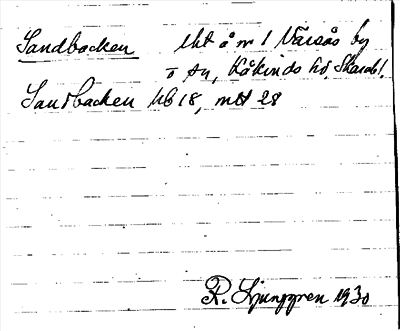 Sandbacken lht å nr 1 Varsås by
o sn, Kåkinds hd, Skarabl.
Sandbacken Hb 18, mtl 28
R. Ljunggren 1930